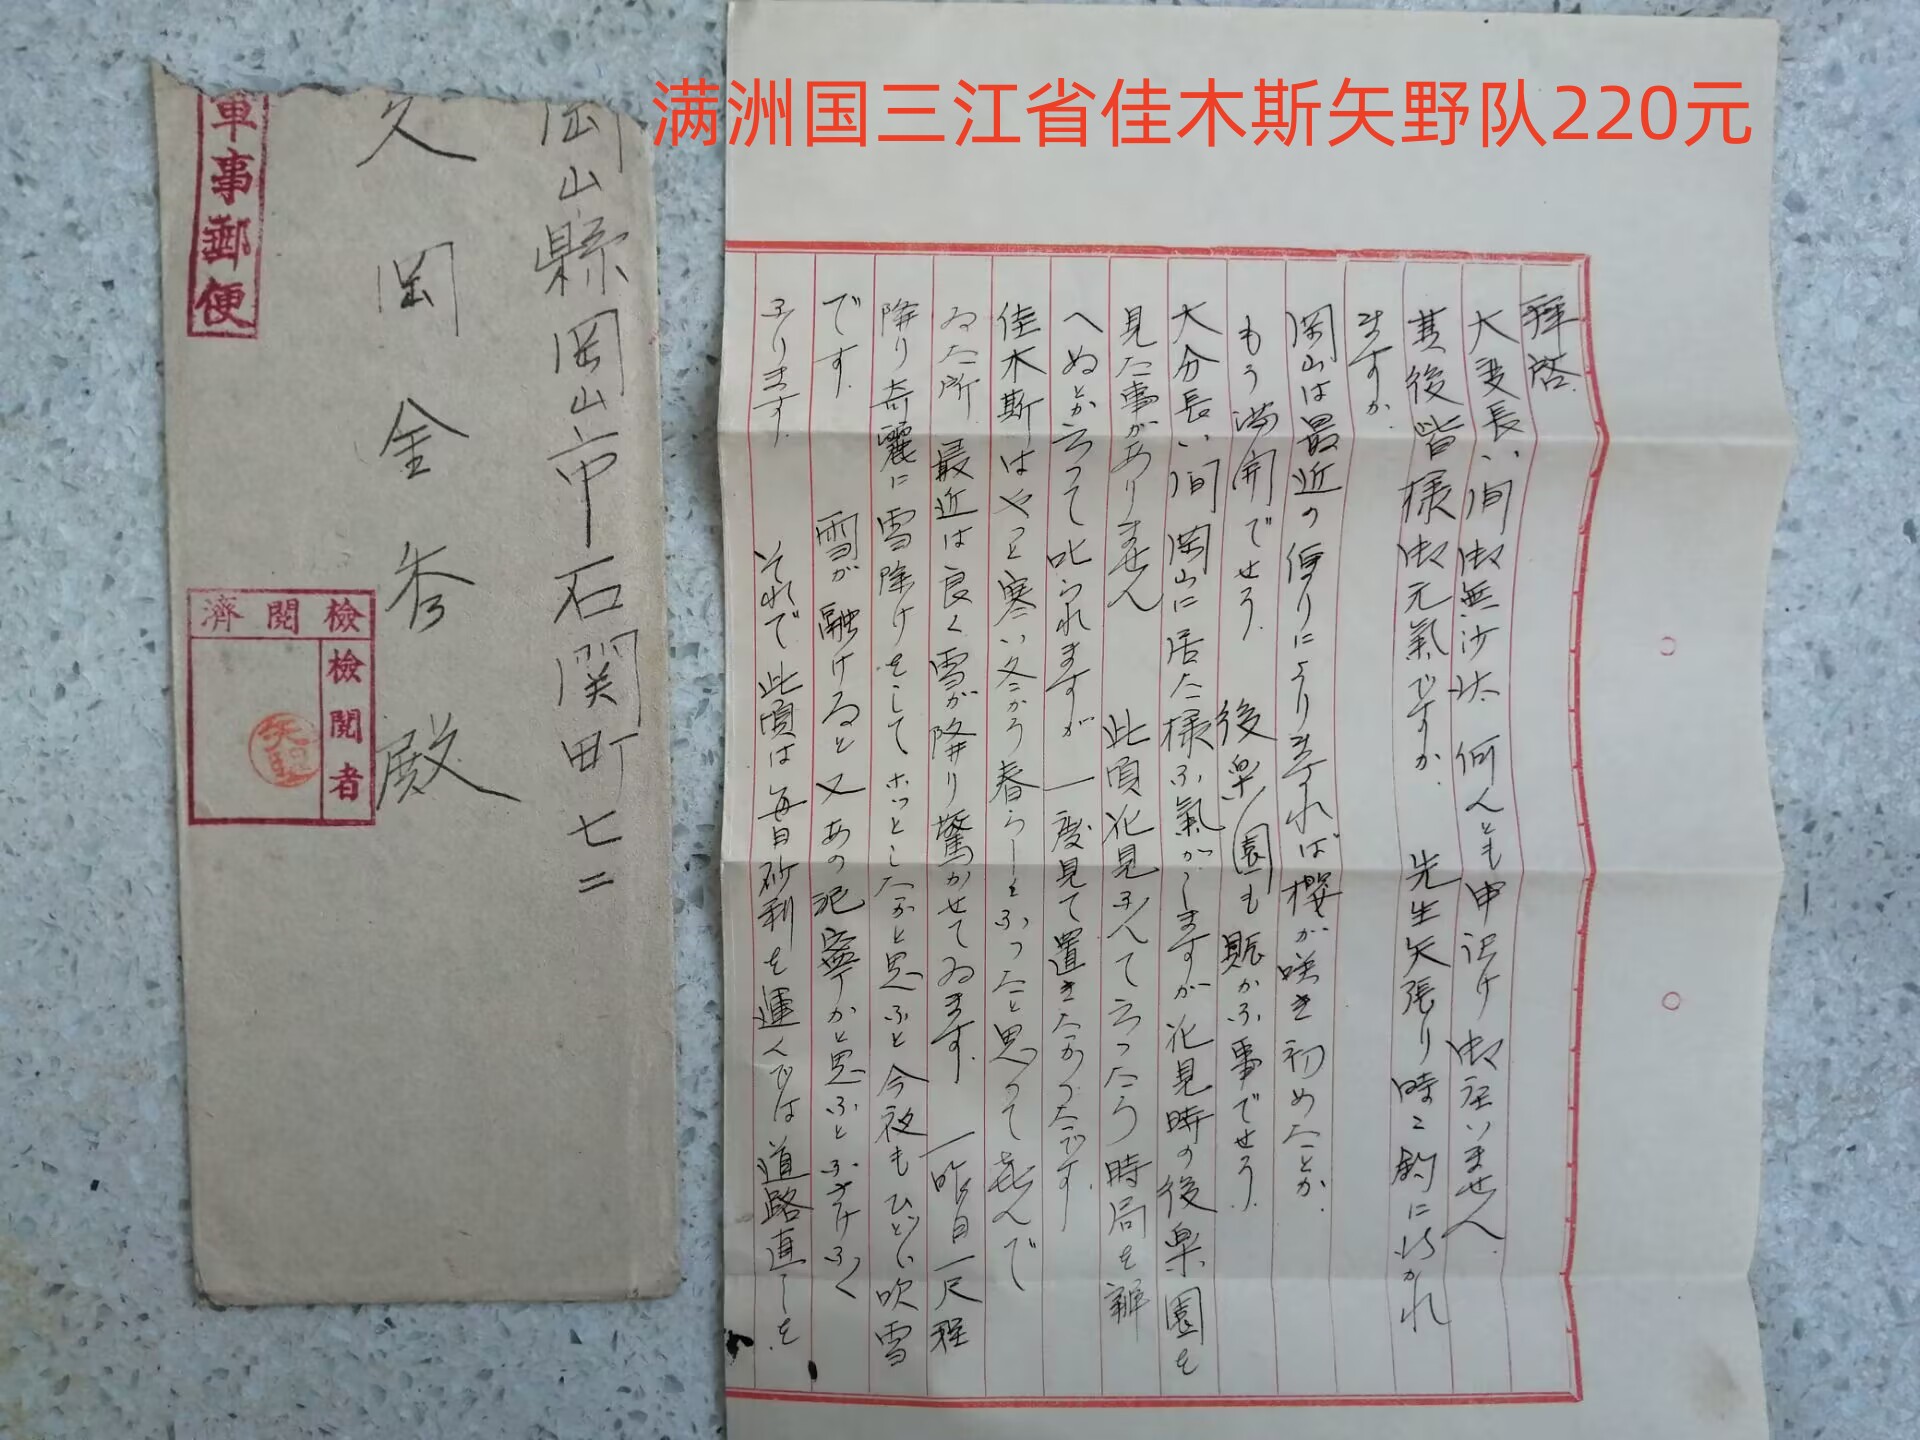 满洲国三江省佳木斯矢野队220元
軍事郵便
岡山縣岡山市石関町七二
久岡金秀殿
檢閲濟
檢閲者
拝啓
大変長い間御無沙汰何んとも申訳け御座いません
其後皆様御元氣ですか 先生矢張り時々釣に行かれ
ますか
岡山は最近の便りによりますれば桜が咲き初めたとか
もう満開でせう 後楽園も賑かな事でせう
大分長い間岡山に居た様な氣がしますが花見時の後楽園を
見た事がありません 此頃花見なんて云ったら時局を辨
へぬとか云って叱られますが一度見て置きたかったです
佳木斯はやっと寒い冬から春らしくなったと思って喜んで
ゐた所 最近は良く雪が降り驚かせてゐます 一昨日一尺程
降り奇麗に雪除けをしてホッとしたかと思ふと今夜もひどい吹雪
です 雪が融けると又あの泥寧かと思ふとなさけなく
なります それで此頃は毎日砂利を運んでは道路直しを